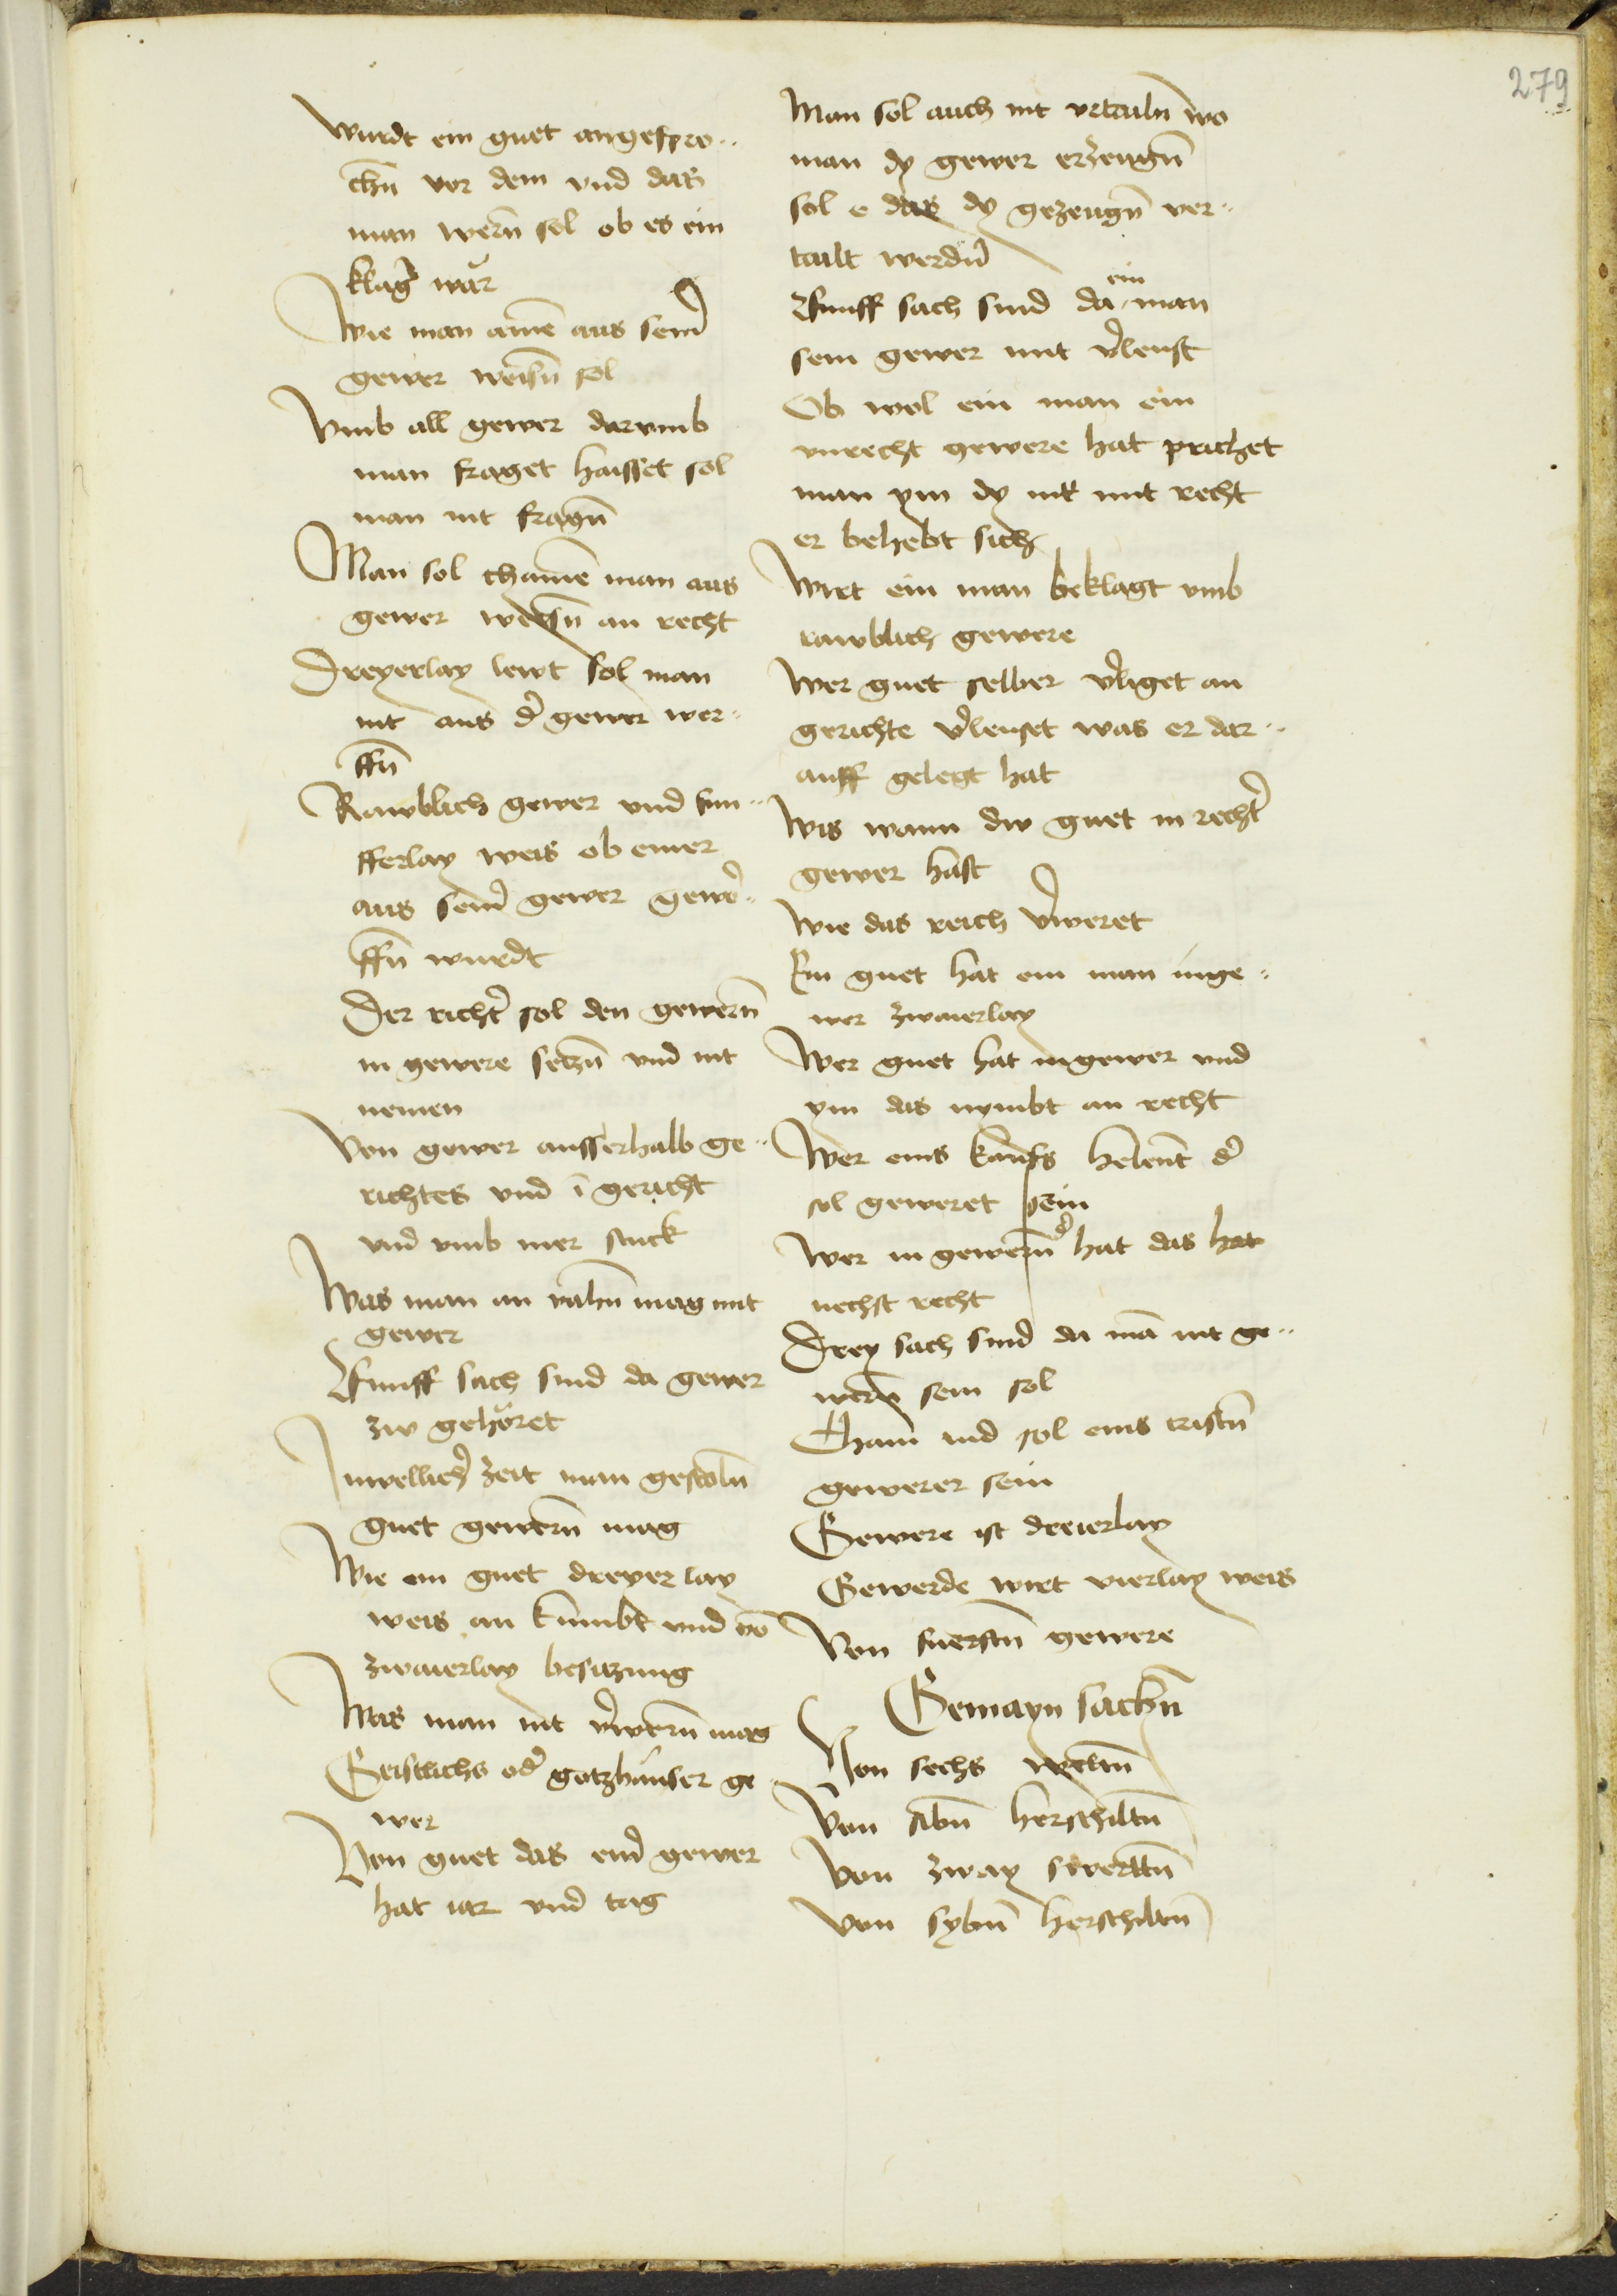 279
wurdt ein guet angespro¨
chn̄ vor dem vnd das
man wern̄ sol ob es ein
klag̉ wär
Wie man aine͂ aus sein̉
gewer weisn̄ sol
Vmb all gewer darvmb
man fraget haisset sol
man nit fragn̄
Man sol chaine͂ man aus
gewer weisn̄ an recht
Dreyerlay lewt sol man
nit aus d̉ gewer wer¨
ffn̄
Rawblich gewer vnd fun¨
fferlay weis ob einer
aus sein̉ gewer gewo̕¨
ffn̄ wurdt
Der richt̉ sol den gewern̄
in gewere seczn̄ vnd nit
nemen
Von gewer ausserhalb ge¨
richtes vnd i͂ gericht
vnd vmb mer stuck
Was man an valn̄ mag mit
gewer
Funff sach sind da gewer
zw gehöret
In wellich̉ zeit man gestoln̄
guet gewern̄ mag
Wie ein guet dreyerlay
weis an kumbt vnd vo͂
zwaierlay besiczung
Was man nit v̉wern̄ mag
Geistlichs od̉ gotzhäuser ge
wer
Von guet das ein̉ gewer
hat iar vnd tag
Man sol auch nit vrtailn̄ wo
man dy gewer erzeugn̄
sol e das dy gezeugn̄ ver¨
tailt werdn̄
Funff sach sind da ein man
sein gewer mit v̉leust
Ob wol ein man ein
vnrecht gewere hat prichet
man ym dy nit mit recht
er behebt sich
Wirt ein man beklagt vmb
rawblich gewere
Wer guet selber v̉liget an
gerichte v̉leuset was er dar¨
auff gelegt hat
Wis wann dw guet in recht̉
gewer hast
Wie das reich v̉weret
Ein guet hat ein man inge¨
wer zwaierlay
Wer guet hat ingewer vnd
ym das nymbt an recht
Wer eins kaufs d̉
sol geweret sein
Wer in gewern̄ d̉ hat das hat
nechst recht
Drey sach sind da ma͂ nit ge¨
wern̄ sein sol
Chain iud sol eins cristn̄
gewerer sein
Gewere ist dreierlay
Gewerde wirt vierlay weis
Von gewere
Gemayn sachn̄
Von sechs weltn̄
Von sibn̄ herschiltn̄
Von zway swerttn̄
Von sybn̄ herschiltn̄